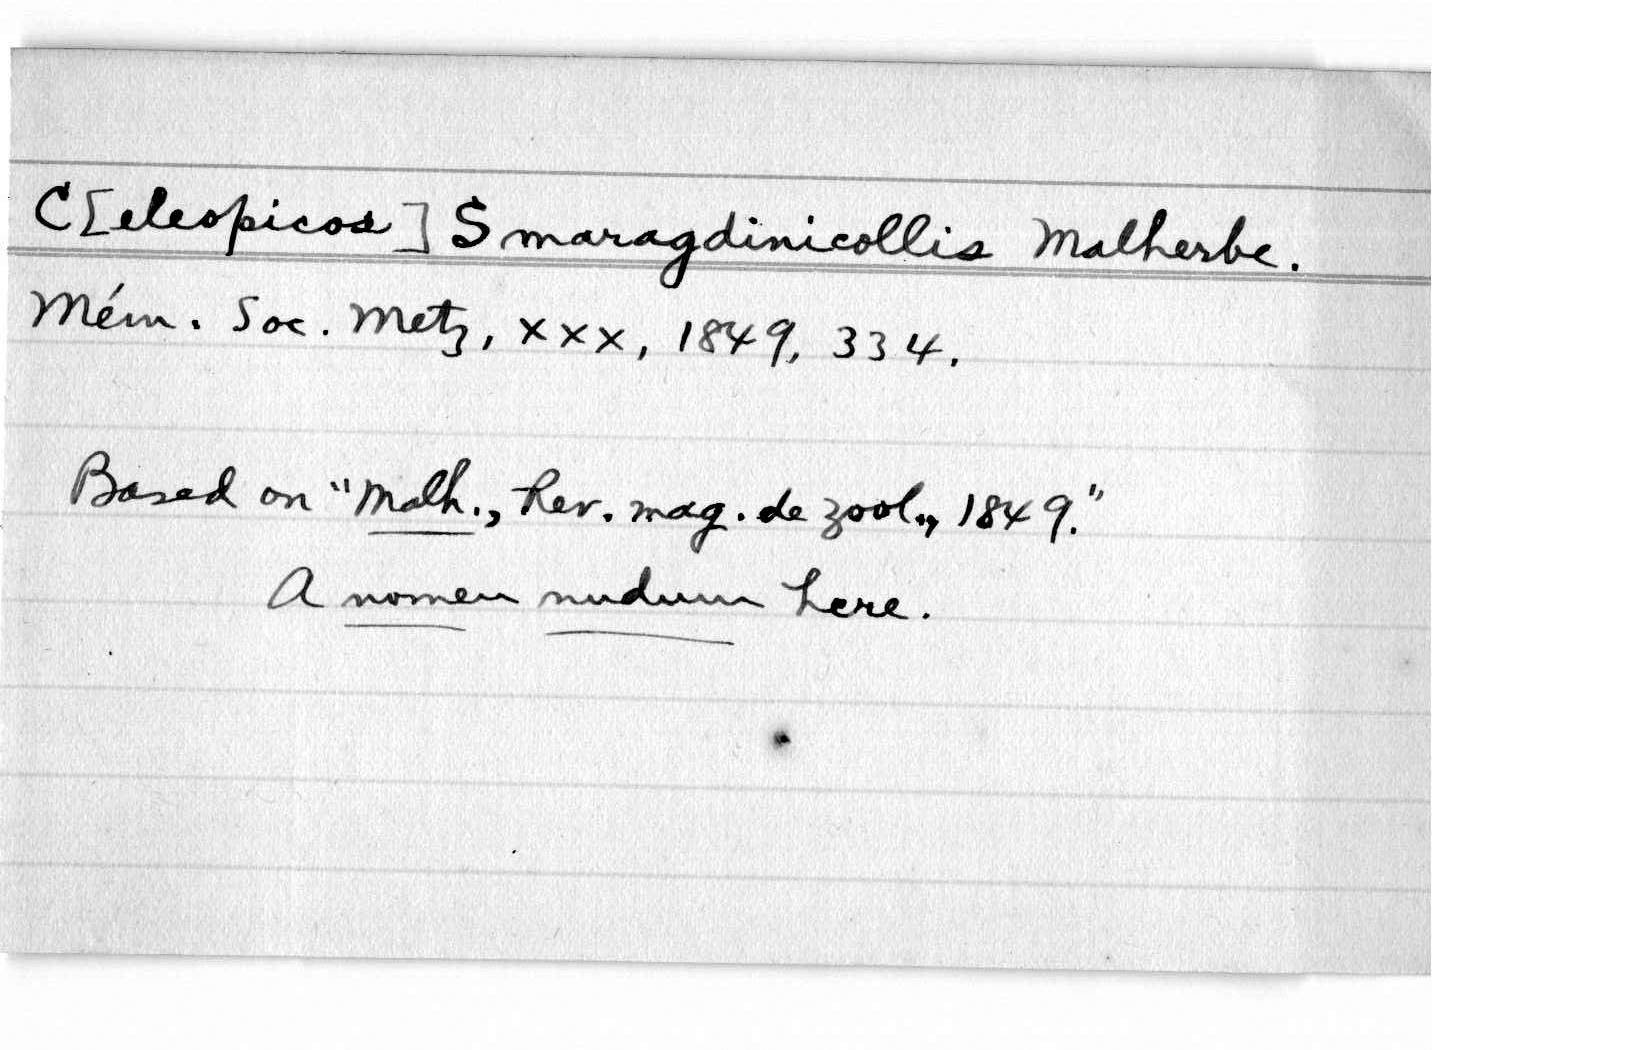 C[eleopicos] Smaragdinicollis Malherbe.
Mém. Soc. Metz, xxx, 1849, 334.
Based on "Malh., Rev. mag. de zool., 1849."
A nomen nudum here.